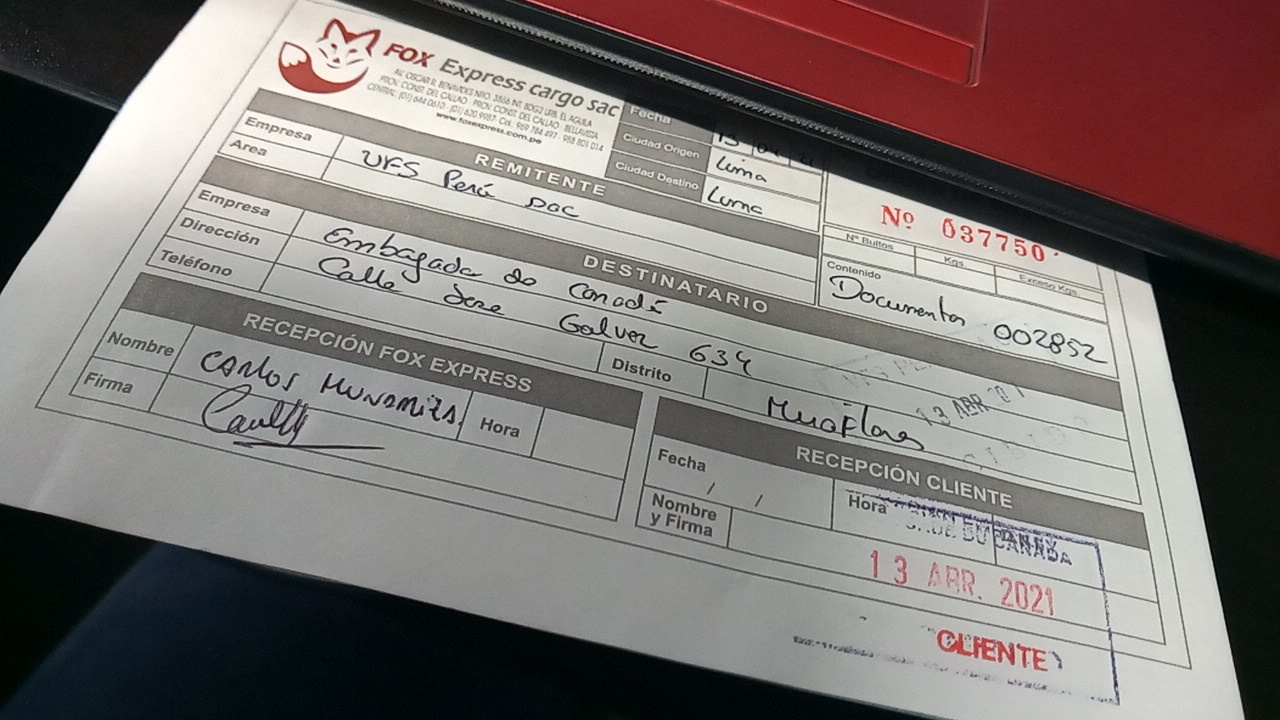 FOX Express cargo sac
AV. OSCAR R. BENAVIDES NRO. 3866 INT. BOG2 URB. EL AGUILA
PROV. CONST. DEL CALLAO - PROV. CONST. DEL CALLAO - BELLAVISTA
CENTRAL: (01) 644 0610 - (01) 620 9987 - Cel.: 969 784 497 - 998 801 014
www.foxexpress.com.pe
Fecha 13
Ciudad Origen Lima
Ciudad Destino Lima
Nº 037750
Nº Bultos Kgs. Exceso Kgs.
Contenido
Documentos 002852
REMITENTE
Empresa UFS Perú sac
Area
DESTINATARIO
Empresa Embagada de Canadá
Dirección Calle Jose Galvez 634
Teléfono Distrito Miraflores
13 ABR
RECEPCIÓN FOX EXPRESS
Nombre CARLOS Hora
Firma
RECEPCIÓN CLIENTE
Fecha / / Hora
Nombre
y Firma
CANADA
13 ABR. 2021
CLIENTE